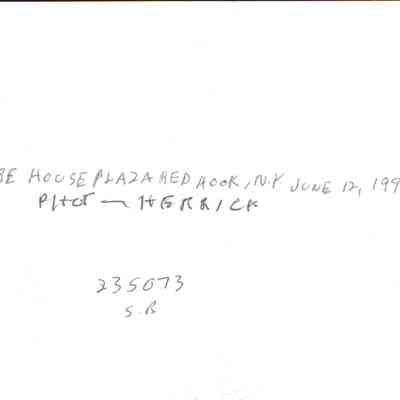 BE HOUSE PLAZA RED HOOK, N.Y. JUNE 12, 199
PHOT — HERRICK
235073
S.B